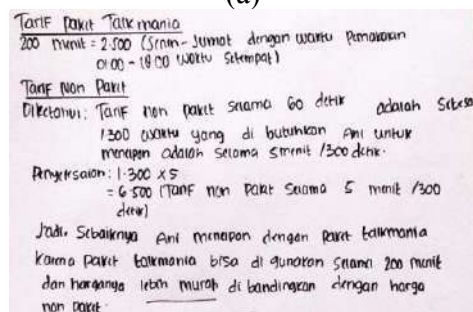 (a)
Tarif Paket Talkmania
200 menit = 2.500 (Senin - Jumat dengan waktu Pemakaian
01:00 - 18:00 Waktu Setempat)
Tarif Non Paket
Diketahui: Tarif non paket selama 60 detik adalah Sebesa
1300 waktu yang di butuhkan Ani untuk
menelpon adalah selama 5menit /300 detik.
Penyelesaian: 1.300 x 5
= 6.500 (Tarif non Paket Selama 5 menit /300
detik)
Jadi, Sebaiknya Ani menelpon dengan paket talkmania
karena paket talkmania bisa di gunakan selama 200 menit
dan harganya lebih murah di bandingkan dengan harga
non paket.